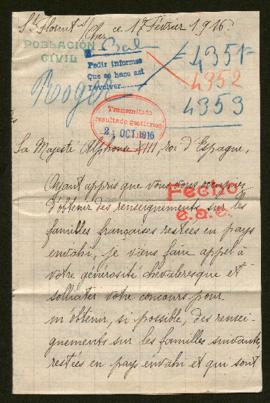 St Florent s/ Cher ce 17 Février 1916
POBLACIÓN
CIVIL
Bal
4351
Pedir informes
Que se hans est
Devolver
4952
Roger
4353
Transmitido
resultado gestiones
21 OCT. 1916
Sa Majesté Alphonse XIII, roi d'Espagne,
Ayant appris que vous vous
Fecho
d'obtenir des renseignements sur les
e.a.e.
familles françaises restées en pays
envahi, je viens faire appel à
votre générosité chevaleresque et
solliciter votre concours pour
m'obtenir, si possible, des rensei-
gnements sur les familles suivantes,
restées en pays envahi et qui sont